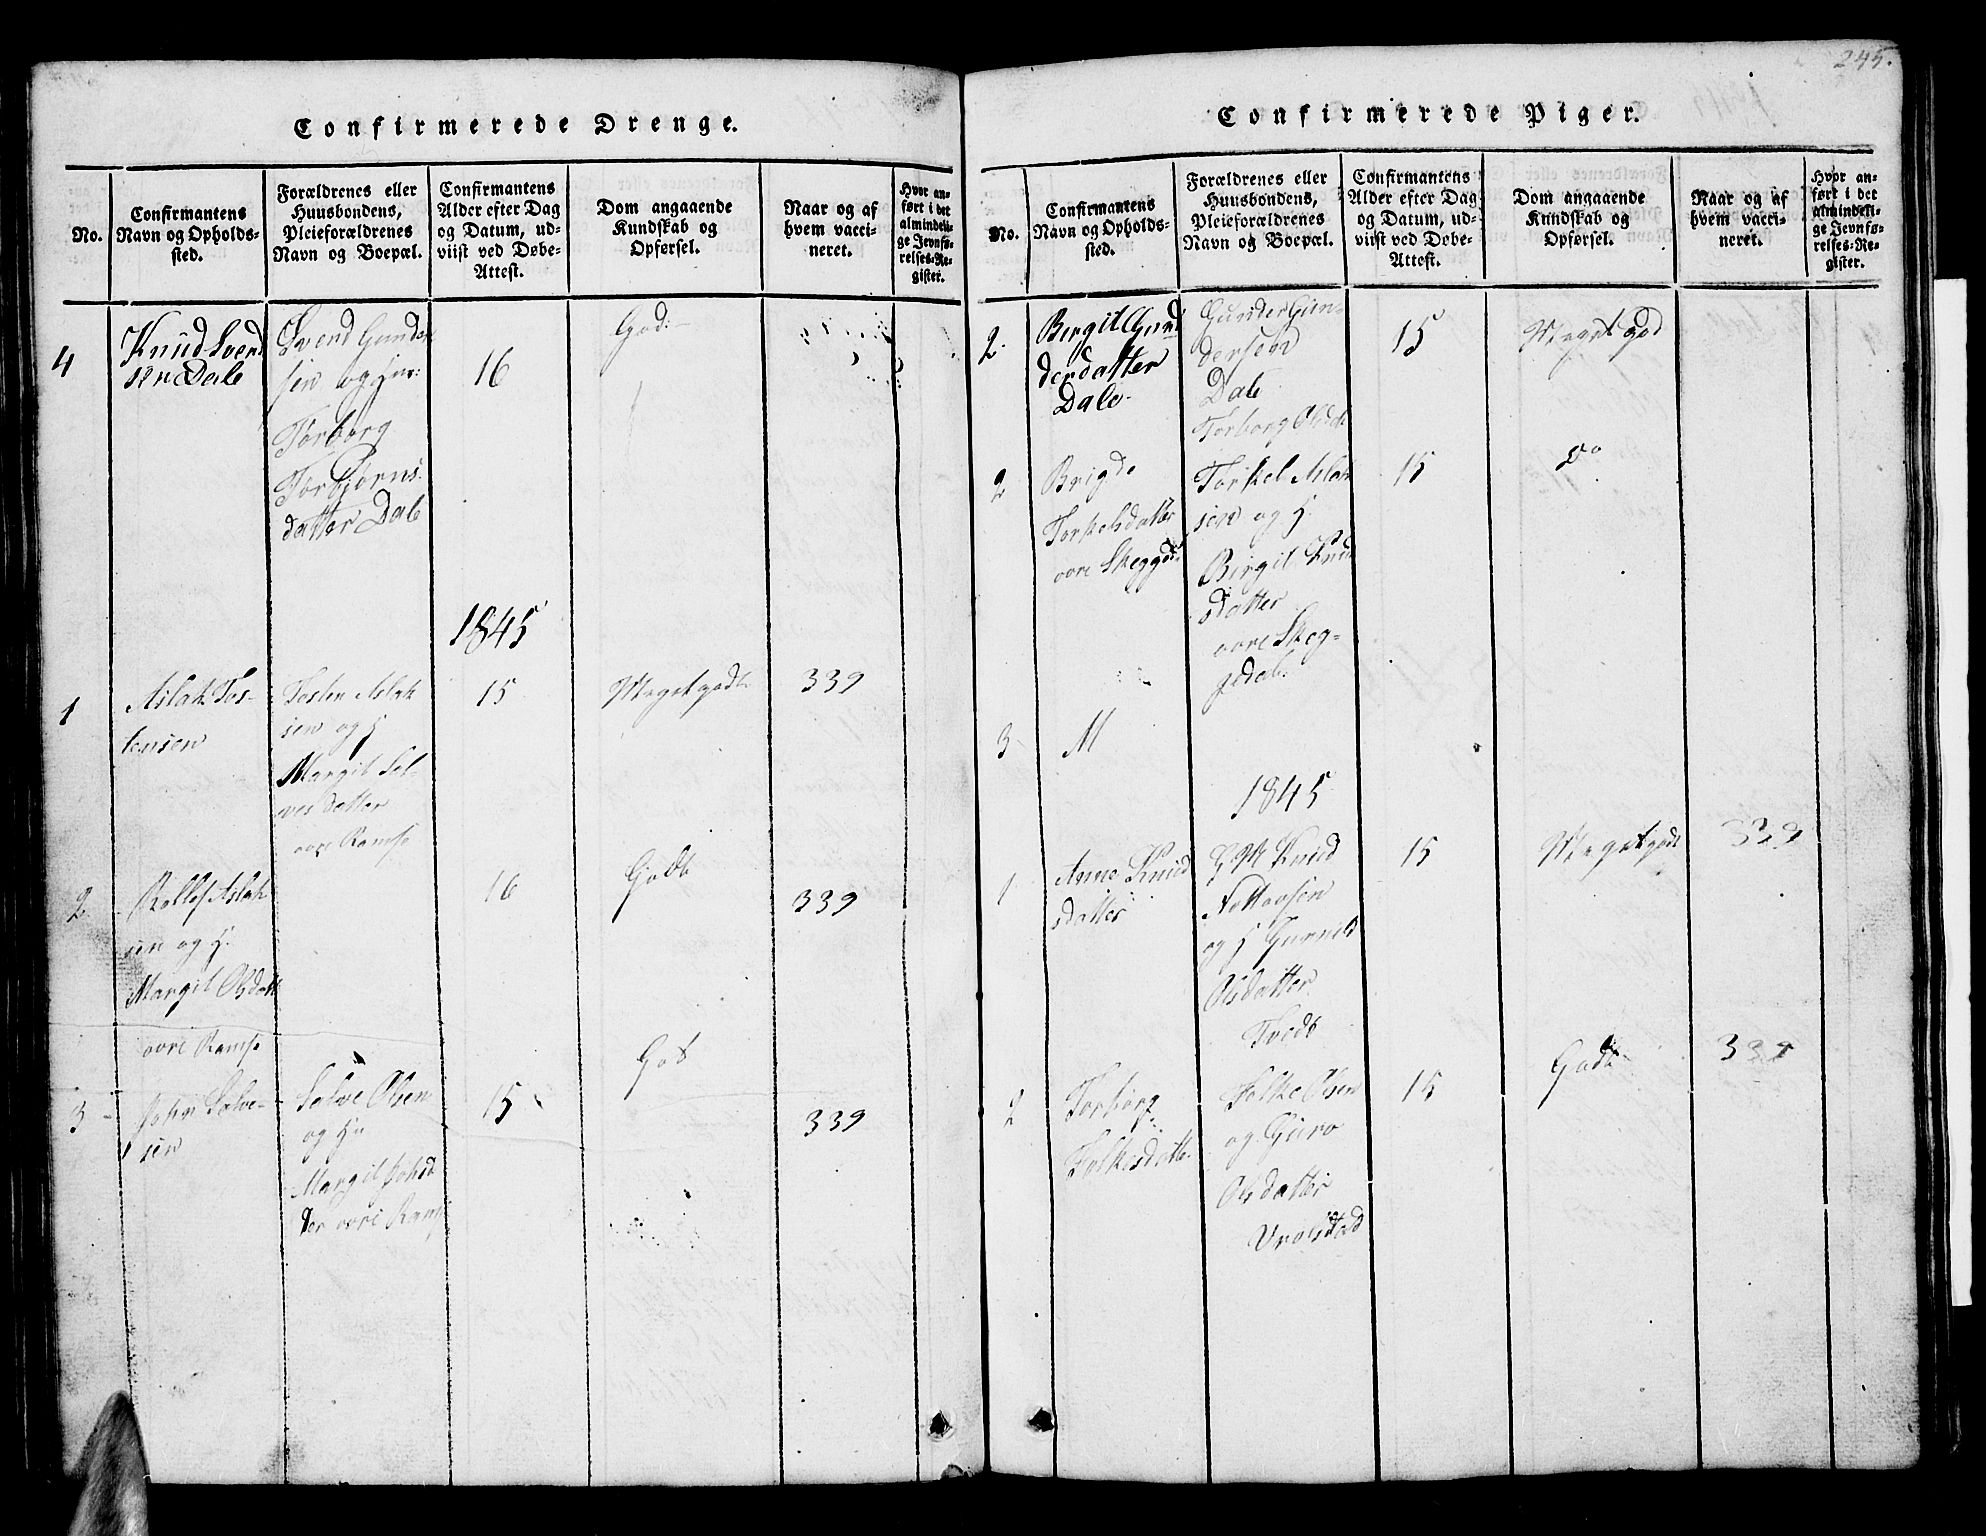 245.
Confirmerede Drenge.
No.
Confirmantens
Navn og Opholds-
sted.
Forældrenes eller
Huusbondens,
Pleieforældrenes
Navn og Boepæl.
Confirmantens
Alder efter Dag
og Datum, ud-
viist ved Døbe-
Attest.
Dom angaaende
Kundskab og
Opførsel.
Naar og af
hvem vacci-
neret.
Hvor an-
ført i det
almindeli-
ge Jevnfø-
relses-Re-
gister.
4
Knud Svend
sen Dale
Svend Gunder
sen og
Torborg
Torbjørns
datter Dale
16
God
1845
1
Aslak Tos-
tensen
Tosten Aslak
sen og H
Margit Sal-
ves datter
øvre Ramse
15
Meget godt
339
2
Rollef Aslak
sen og H.
Margit Olsdatt
øvre Ramse
16
Godt
339
3
John Salve-
sen
Salve Olsen
og Hu
Margit Johsd
ter øvre Rams
15
God
339
Confirmerede Piger.
No.
Confirmantens
Navn og Opholds-
sted.
Forældrenes eller
Huusbondens,
Pleieforældrenes
Navn og Boepæl.
Confirmantens
Alder efter Dag
og Datum, ud-
viist ved Døbe-
Attest.
Dom angaaende
Kundskab og
Opførsel.
Naar og af
hvem vacci-
neret.
Hvor an-
ført i det
almindeli-
ge Jevnfø-
relses-Re-
gister.
2
Birgit Gun
derdatter
Dale
Gunder Gun-
dersen
Dale
Torborg Olsdt
15
Meget god
2
Torkelsdatter
øvre
Torkel Aslak
sen og H.
Birgit Knu
sdatter
øvre Skeg-
gedal
15
do
3
M
1845
1
Anne Knud
sdatter
Knud
og H Gunnild
Olsdatter
Tvedt
15
Meget godt
339
2
Torborg
Folkesdatte
Folke Olsen
og Guro
Olsdatter
Vrolstad
15
Godt
339